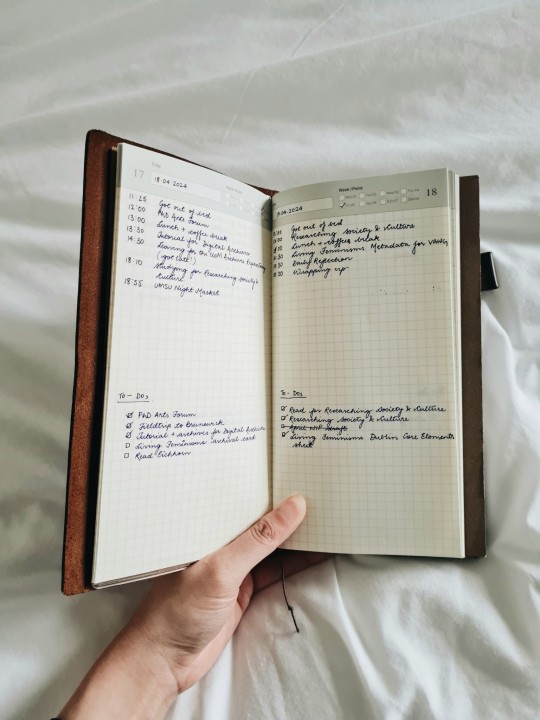 17
18.04.2024
11:25 Got out of bed
12:00 PhD Arts Forum
13:00 Lunch + coffee break
13:30 Tutorial for Digital Archives
14:30 Leaving for
(got late!)
18:10 Studying for Researching Society &
Culture
18:55 UMSU Night Market
To-Dos
PhD Arts Forum
Fieldtrip to Brunswick
Tutorial + archives for Digital Archives
Living Feminisms archival card
Read Eichhorn
18
.04.2024
Got out of bed
Researching Society & Culture
Lunch + coffee break
Living Feminisms Metadata for
Daily Reflection
Wrapping up
To-Dos
Read for Researching Society & Culture
Researching Society & Culture
April
Living Feminisms Dublin Core Elements
sheet